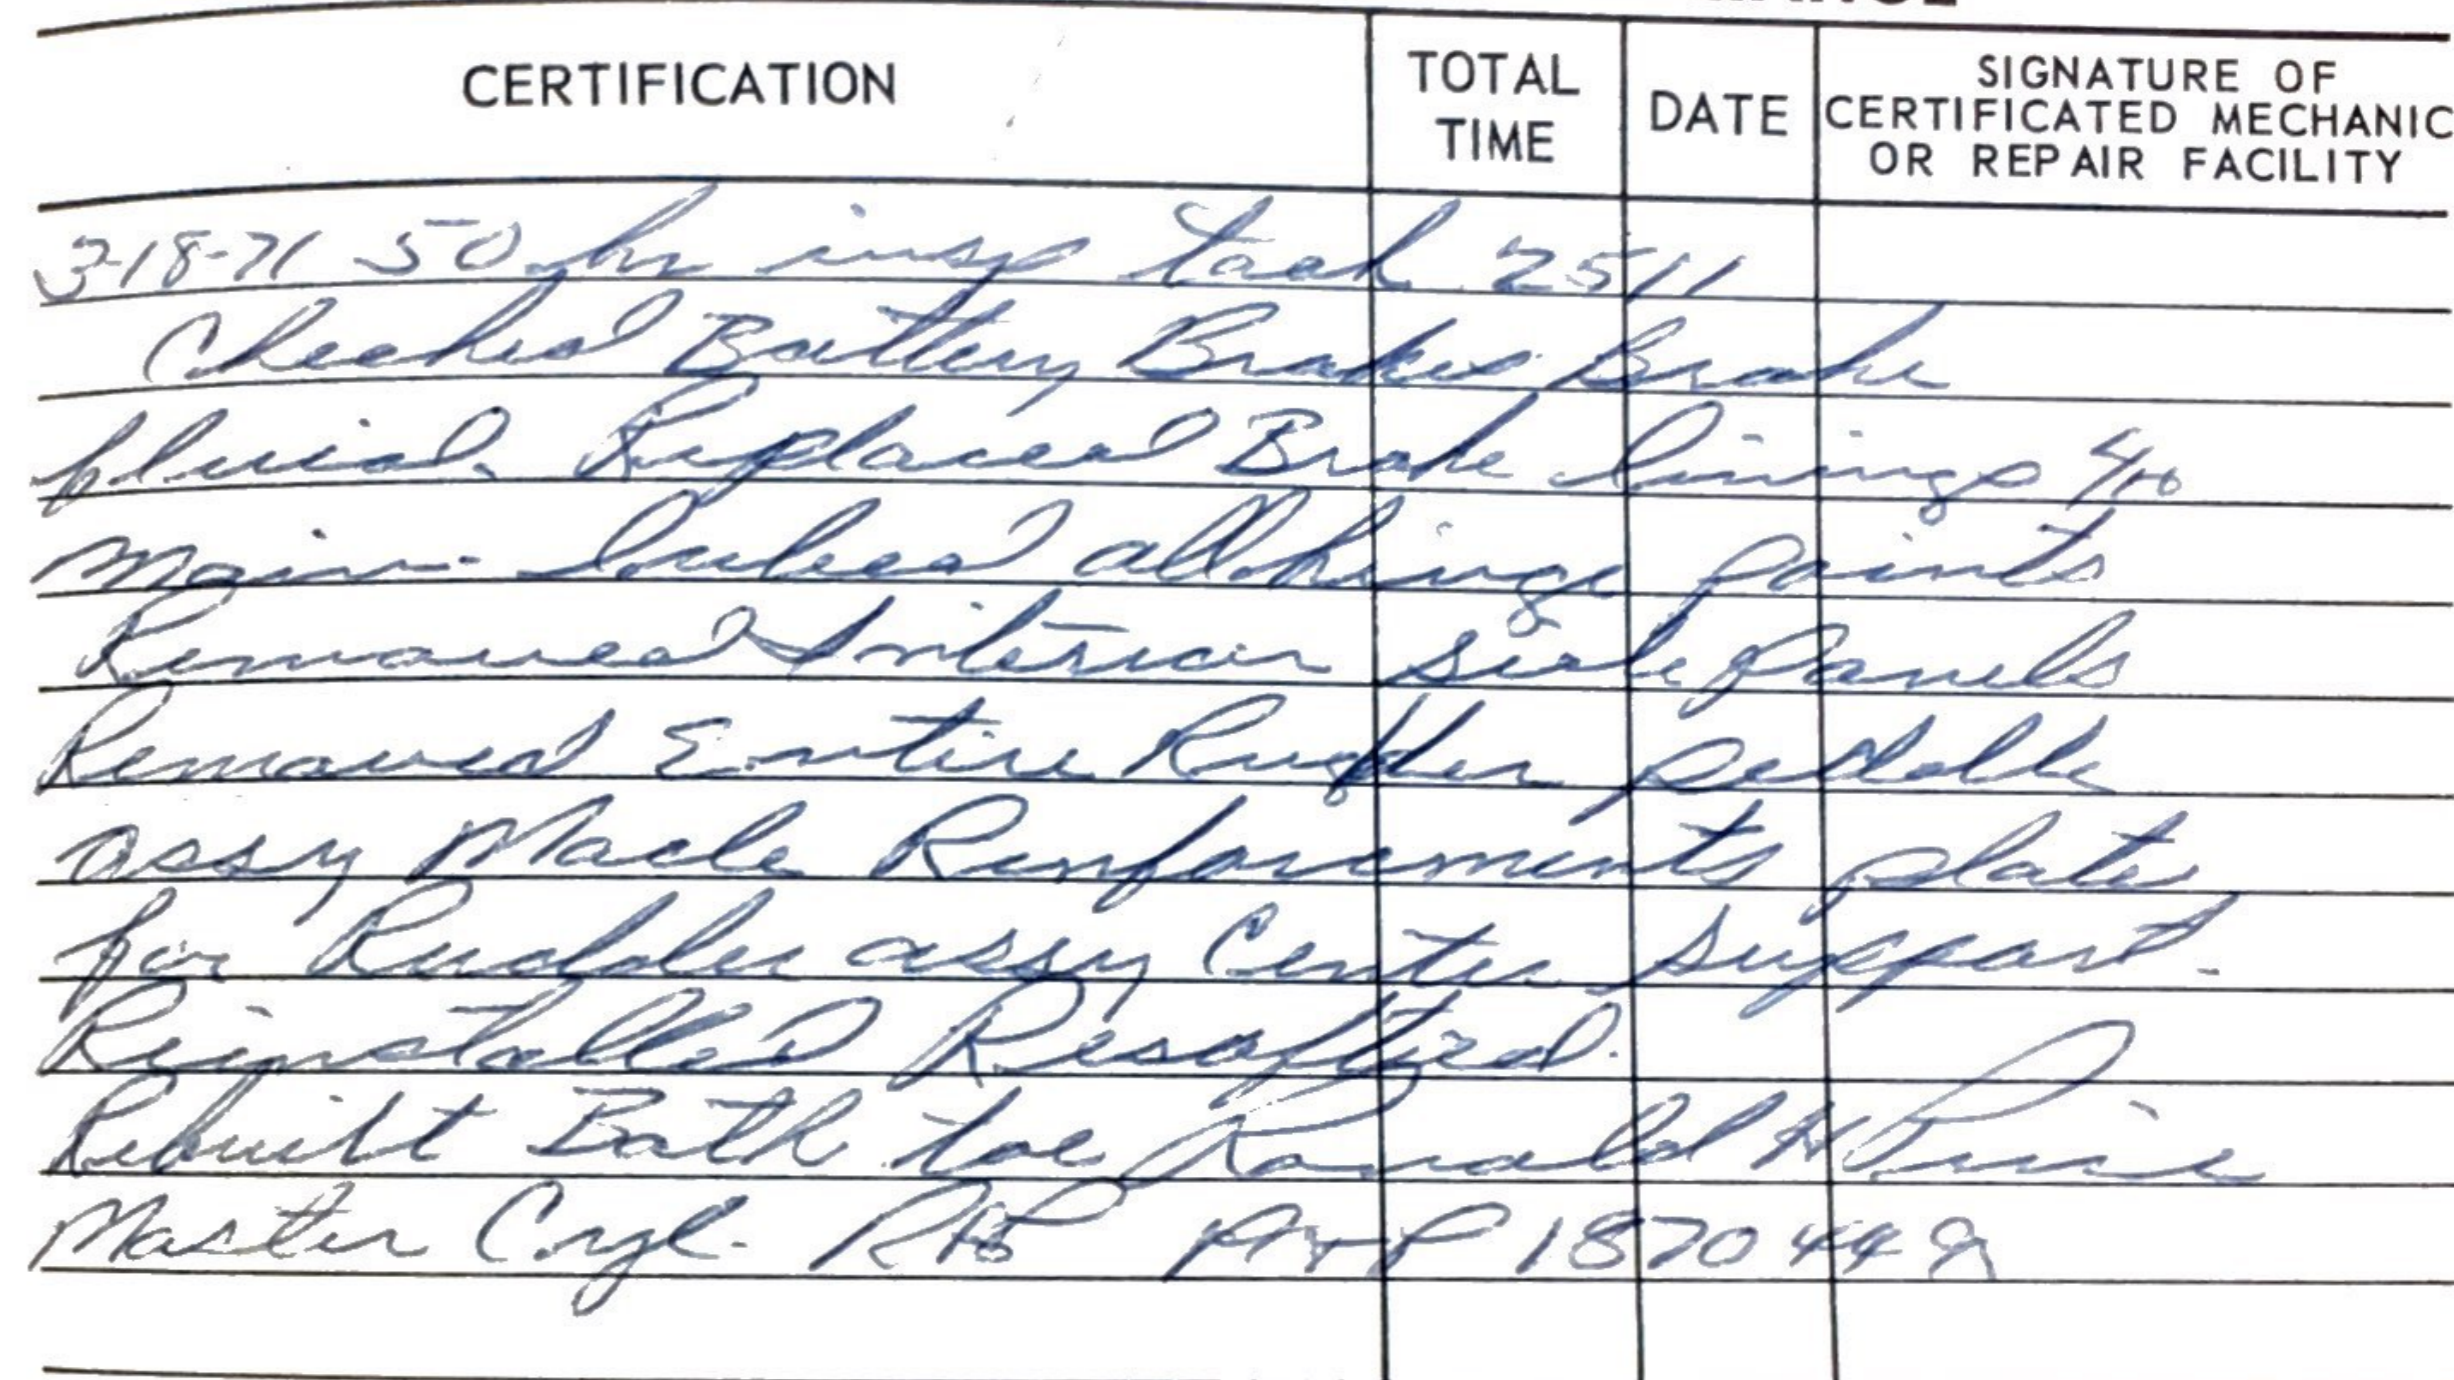 CERTIFICATION
TOTAL
TIME
DATE
SIGNATURE OF
CERTIFICATED MECHANIC
OR REPAIR FACILITY
3-18-71 50 hr insp tach 2511
Checked Battery Brakes Brake
fluid. Replaced Brake linings
Main - lubed all hinge points
Removed Interior side panels
Removed Entire Rudder peddle
assy Made Renforcments plate
for Rudder assy Center support.
Reinstalled
Rebuilt Both toe Ronald H
Master Cyl. R&P A+P 1870449